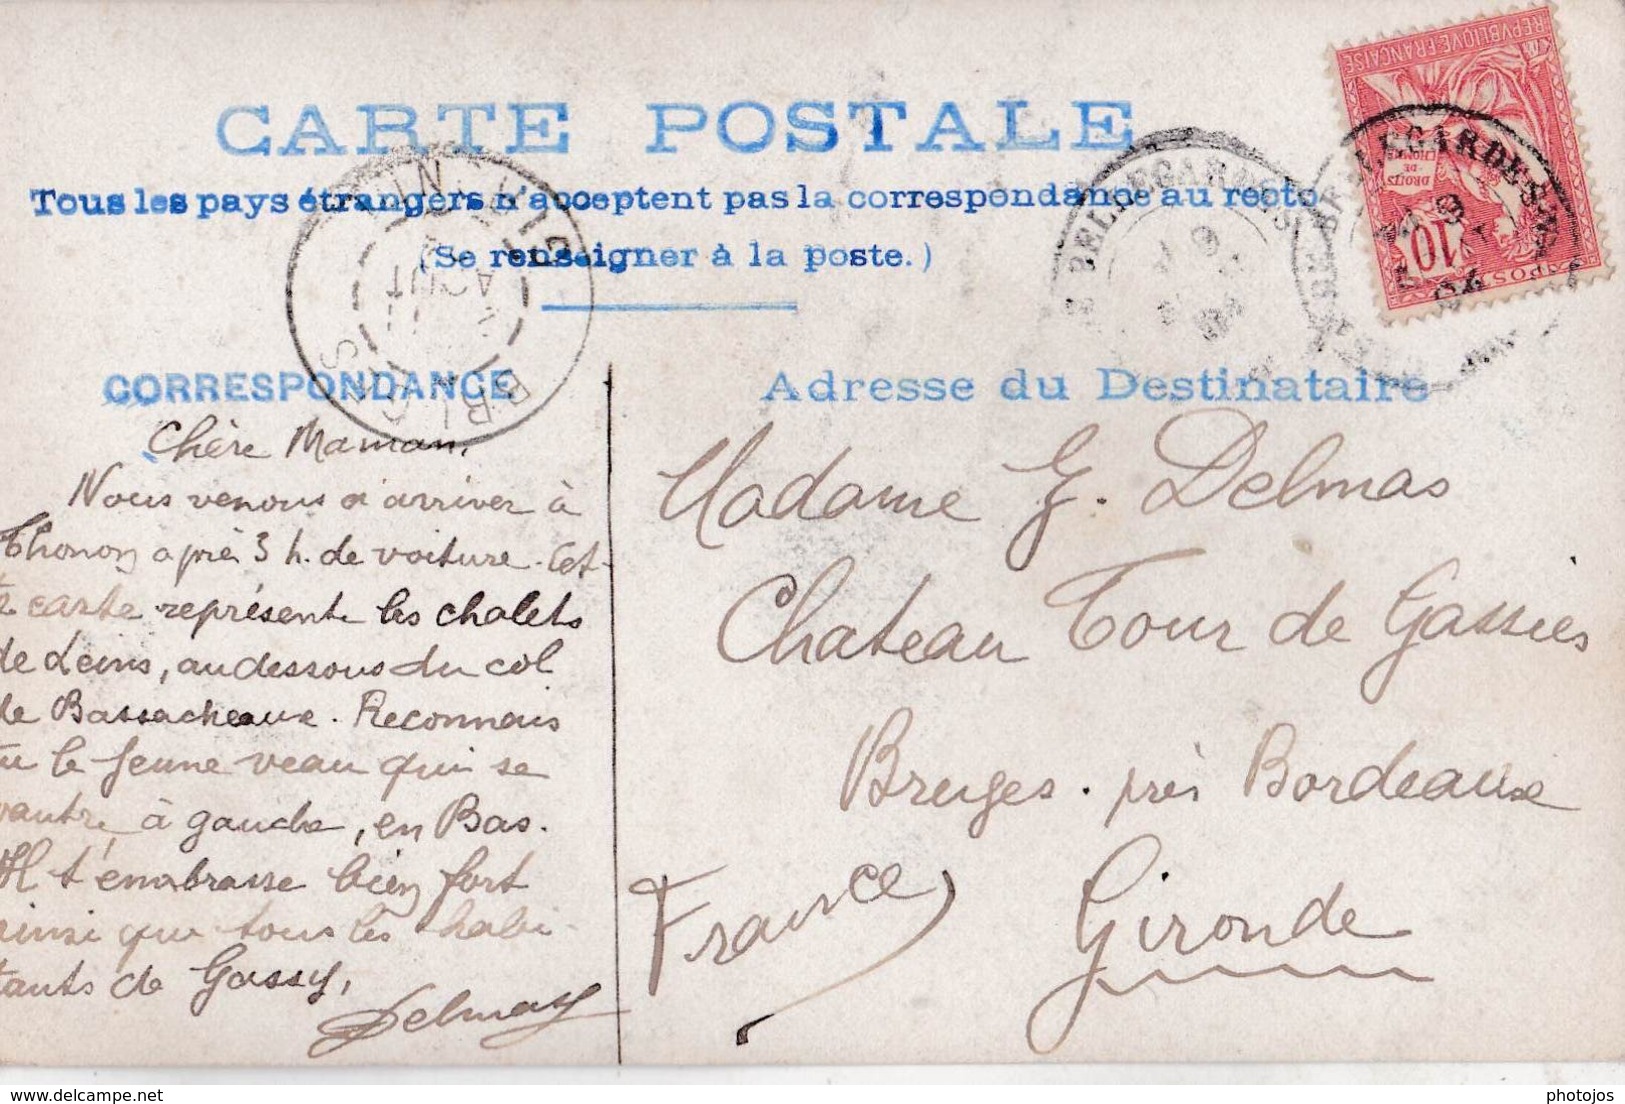 CARTE POSTALE
Tous les pays étrangers n'acceptent pas la correspondance au recto
(Se renseigner à la poste.)
REPVBLIQVE FRANÇAISE
DROITS
DE
L'HOMME
10
POSTES
BELLEGARDE
BELLEGARDE
04
AOUT
CORRESPONDANCE
Adresse du Destinataire
Chère Maman,
Nous venons d'arriver à
Thonon après 3 h. de voiture. Cet-
te carte représente les chalets
de Leins, au dessous du col
de Bassacheaux. Reconnais
tu le jeune veau qui se
vautre, à gauche, en Bas.
Il t'embrasse bien fort
ainsi que tous les habi
tants de Gassy,
Delmas
Madame G. Delmas
Chateau Tour de Gassies
Bruges. près Bordeaux
Gironde
France
photojos